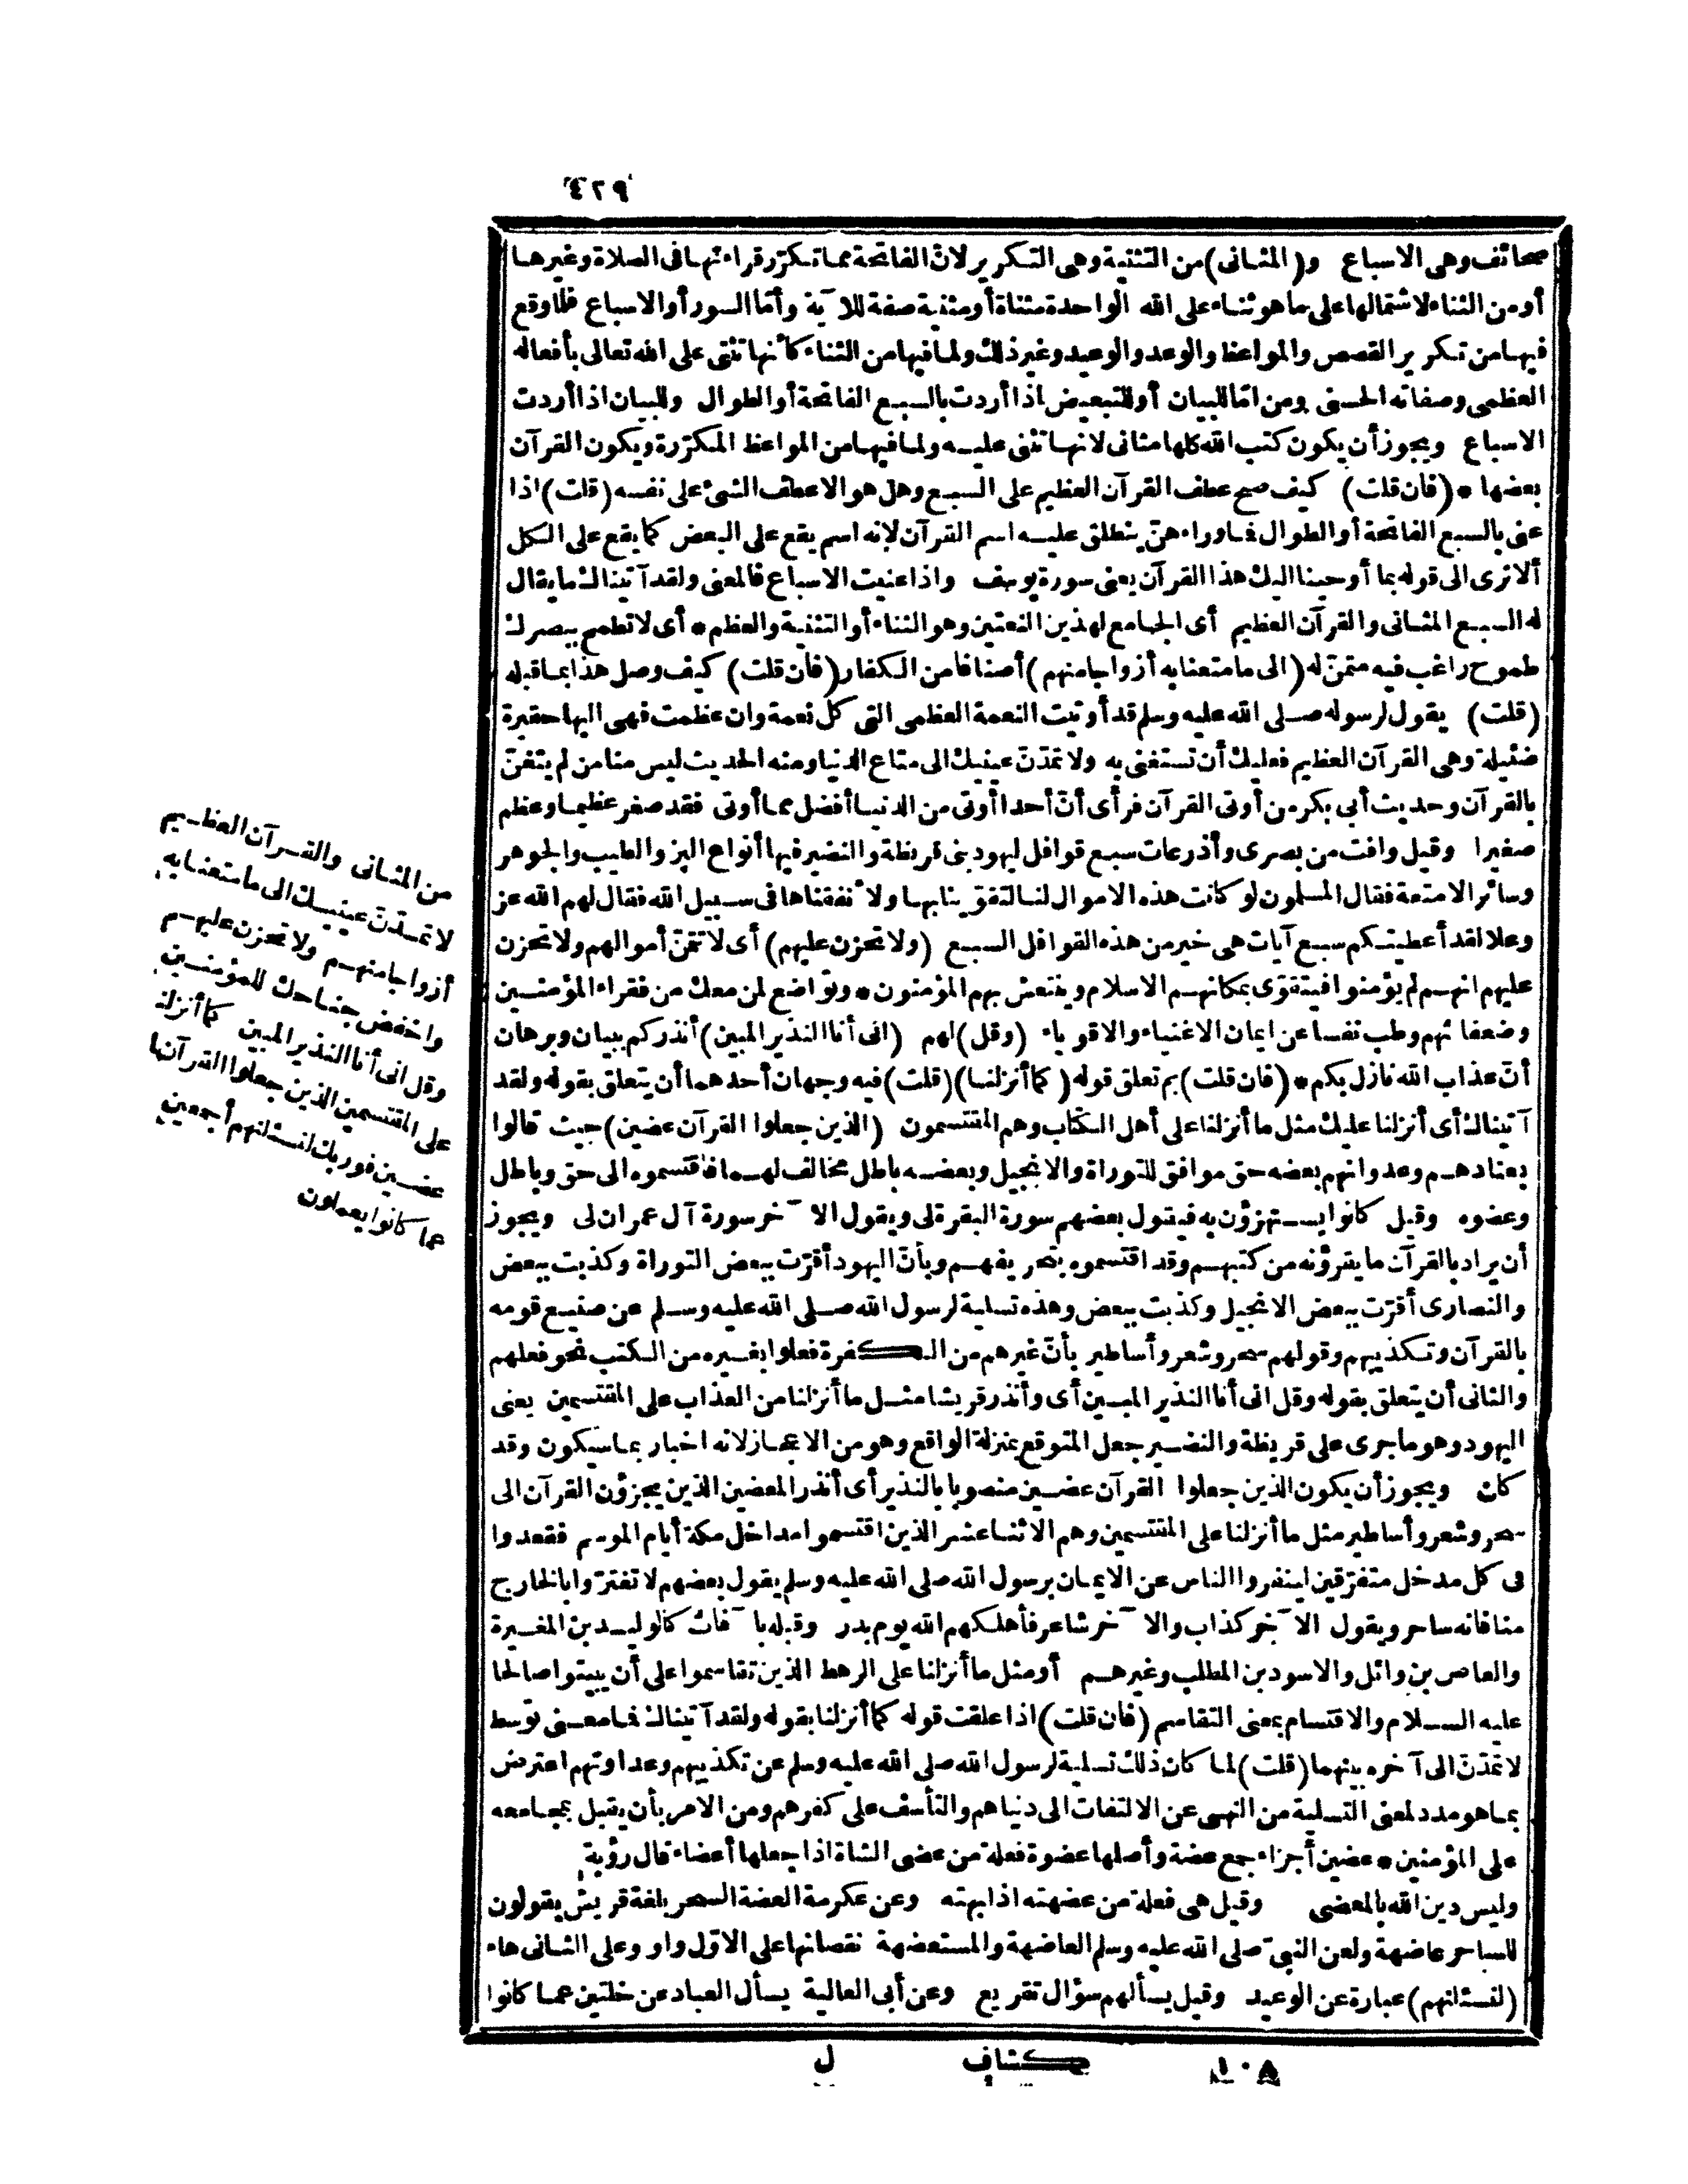 ٤٢٩
صحائف وهى الاسباع و(المثانى) من التثنية وهى التكرير لانّ الفاتحة مما تكرّر قراءتها فى الصلاة وغيرها
أو من الثناء لاشتمالها على ما هو ثناء على الله الواحدة مثناة أو مثنية صفة للآية وأمّا السور أو الاسباع فلما وقع
فيها من تكرير القصص والمواعظ والوعد والوعيد وغير ذلك ولما فيها من الثناء كأنها تثنى على الله تعالى بأفعاله
العظمى وصفاته الحسنى ومن امّا للبيان أو للتبعيض اذا أردت بالسبع الفاتحة أو الطوال وللبيان اذا أردت
الاسباع ويجوز أن يكون كتب الله كلها مثانى لانها تثنى عليه ولما فيها من المواعظ المكرّرة ويكون القرآن
بعضها * (فان قلت) كيف صح عطف القرآن العظيم على السبع وهل هو الا عطف الشئ على نفسه (قلت) اذا
عنى بالسبع الفاتحة أو الطوال فما وراءهنّ ينطلق عليه اسم القرآن لانه اسم يقع على البعض كما يقع على الكل
ألا ترى الى قوله بما أوحينا اليك هذا القرآن يعنى سورة يوسف واذا عنيت الاسباع فالمعنى ولقد آتيناك ما يقال
له السبع المثانى والقرآن العظيم أى الجامع لهذين النعتين وهو الثناء أو التثنية والعظم * أى لا تطمح ببصرك
طموح راغب فيه متمنّ له (الى ما متعنا به أزواجا منهم) أصنافا من الكفار (فان قلت) كيف وصل هذا بما قبله
(قلت) يقول لرسوله صلى الله عليه وسلم قد أوتيت النعمة العظمى التى كل نعمة وان عظمت فهى اليها حقيرة
ضئيلة وهى القرآن العظيم فعليك أن تستغنى به ولا تمدّنّ عينيك الى متاع الدنيا ومنه الحديث ليس منا من لم يتغنّ
بالقرآن وحديث أبى بكر من أوتى القرآن فرأى أنّ أحدا أوتى من الدنيا أفضل مما أوتى فقد صغر عظيما وعظم
صغيرا وقيل وافت من بصرى وأذرعات سبع قوافل ليهود بنى قريظة والنضير فيها أنواع البز والطيب والجوهر
وسائر الامتعة فقال المسلمون لو كانت هذه الاموال لنا لتقوّينا بها ولأنفقناها فى سبيل الله فقال لهم الله عز
وعلا لقد أعطيتكم سبع آيات هى خير من هذه القوافل السبع (ولا تحزن عليهم) أى لا تتمنّ أموالهم ولا تحزن
عليهم انهم لم يؤمنوا فيتقوّى بمكانهم الاسلام وينتعش بهم المؤمنون * وتواضع لمن معك من فقراء المؤمنين
وضعفائهم وطب نفسا عن ايمان الاغنياء والاقوياء (وقل) لهم (انى أنا النذير المبين) أنذركم ببيان وبرهان
أنّ عذاب الله نازل بكم * (فان قلت) بم تعلق قوله (كما أنزلنا) (قلت) فيه وجهان أحدهما أن يتعلق بقوله ولقد
آتيناك أى أنزلنا عليك مثل ما أنزلنا على أهل الكتاب وهم المقتسمون (الذين جعلوا القرآن عضين) حيث قالوا
بعنادهم وعدوانهم بعضه حق موافق للتوراة والانجيل وبعضه باطل مخالف لهما فاقتسموه الى حق وباطل
وعضوه وقيل كانوا يستهزؤن به فيقول بعضهم سورة البقرة لى ويقول الآخر سورة آل عمران لى ويجوز
أن يراد بالقرآن ما يقرؤنه من كتبهم وقد اقتسموه بتحريفهم وبأنّ اليهود أقرّت ببعض التوراة وكذبت ببعض
والنصارى أقرّت ببعض الانجيل وكذبت ببعض وهذه تسلية لرسول الله صلى الله عليه وسلم عن صنيع قومه
بالقرآن وتكذيبهم وقولهم سحر وشعر وأساطير بأنّ غيرهم من الكفرة فعلوا بغيره من الكتب نحو فعلهم
والثانى أن يتعلق بقوله وقل انى أنا النذير المبين أى وأنذر قريشا مثل ما أنزلنا من العذاب على المقتسمين يعنى
اليهود وهو ما جرى على قريظة والنضير جعل المتوقع بمنزلة الواقع وهو من الاعجاز لانه اخبار بما سيكون وقد
كان ويجوز أن يكون الذين جعلوا القرآن عضين منصوبا بالنذير أى أنذر المعضين الذين يجزؤن القرآن الى
سحر وشعر وأساطير مثل ما أنزلنا على المقتسمين وهم الاثنا عشر الذين اقتسموا مداخل مكة أيام الموسم فقعدوا
فى كل مدخل متفرّقين لينفروا الناس عن الايمان برسول الله صلى الله عليه وسلم يقول بعضهم لا تغترّوا بالخارج
منا فانه ساحر ويقول الآخر كذاب والآخر شاعر فأهلكهم الله يوم بدر وقبله بآفات كالوليد بن المغيرة
والعاص بن وائل والاسود بن المطلب وغيرهم أو مثل ما أنزلنا على الرهط الذين تقاسموا على أن يبيتوا صالحا
عليه السلام والاقتسام بمعنى التقاسم (فان قلت) اذا علقت قوله كما أنزلنا بقوله ولقد آتيناك فما معنى توسط
لا تمدّنّ الى آخره بينهما (قلت) لما كان ذلك تسلية لرسول الله صلى الله عليه وسلم عن تكذيبهم وعداوتهم اعترض
بما هو مدد لمعنى التسلية من النهى عن الالتفات الى دنياهم والتأسف على كفرهم ومن الامر بأن يقبل بمجامعه
على المؤمنين * عضين أجزاء جمع عضة وأصلها عضوة فعلة من عضى الشاة اذا جعلها أعضاء قال رؤبة
وليس دين الله بالمعضى وقيل هى فعلة من عضهته اذا بهته وعن عكرمة العضة السحر بلغة قريش يقولون
للساحر عاضهة ولعن النبىّ صلى الله عليه وسلم العاضهة والمستعضهة نقصانها على الاوّل واو وعلى الثانى هاء
(لنسئلنهم) عبارة عن الوعيد وقيل يسألهم سؤال تقريع وعن أبى العالية يسأل العباد عن خلتين عما كانوا
من المثانى والقرآن العظيم
لا تمدّنّ عينيك الى ما متعنا به
أزواجا منهم ولا تحزن عليهم
واخفض جناحك للمؤمنين
وقل انى أنا النذير المبين كما أنزلنا
على المقتسمين الذين جعلوا القرآن
عضين فوربك لنسئلنهم أجمعين
عما كانوا يعملون
١٠٨ كشاف ل